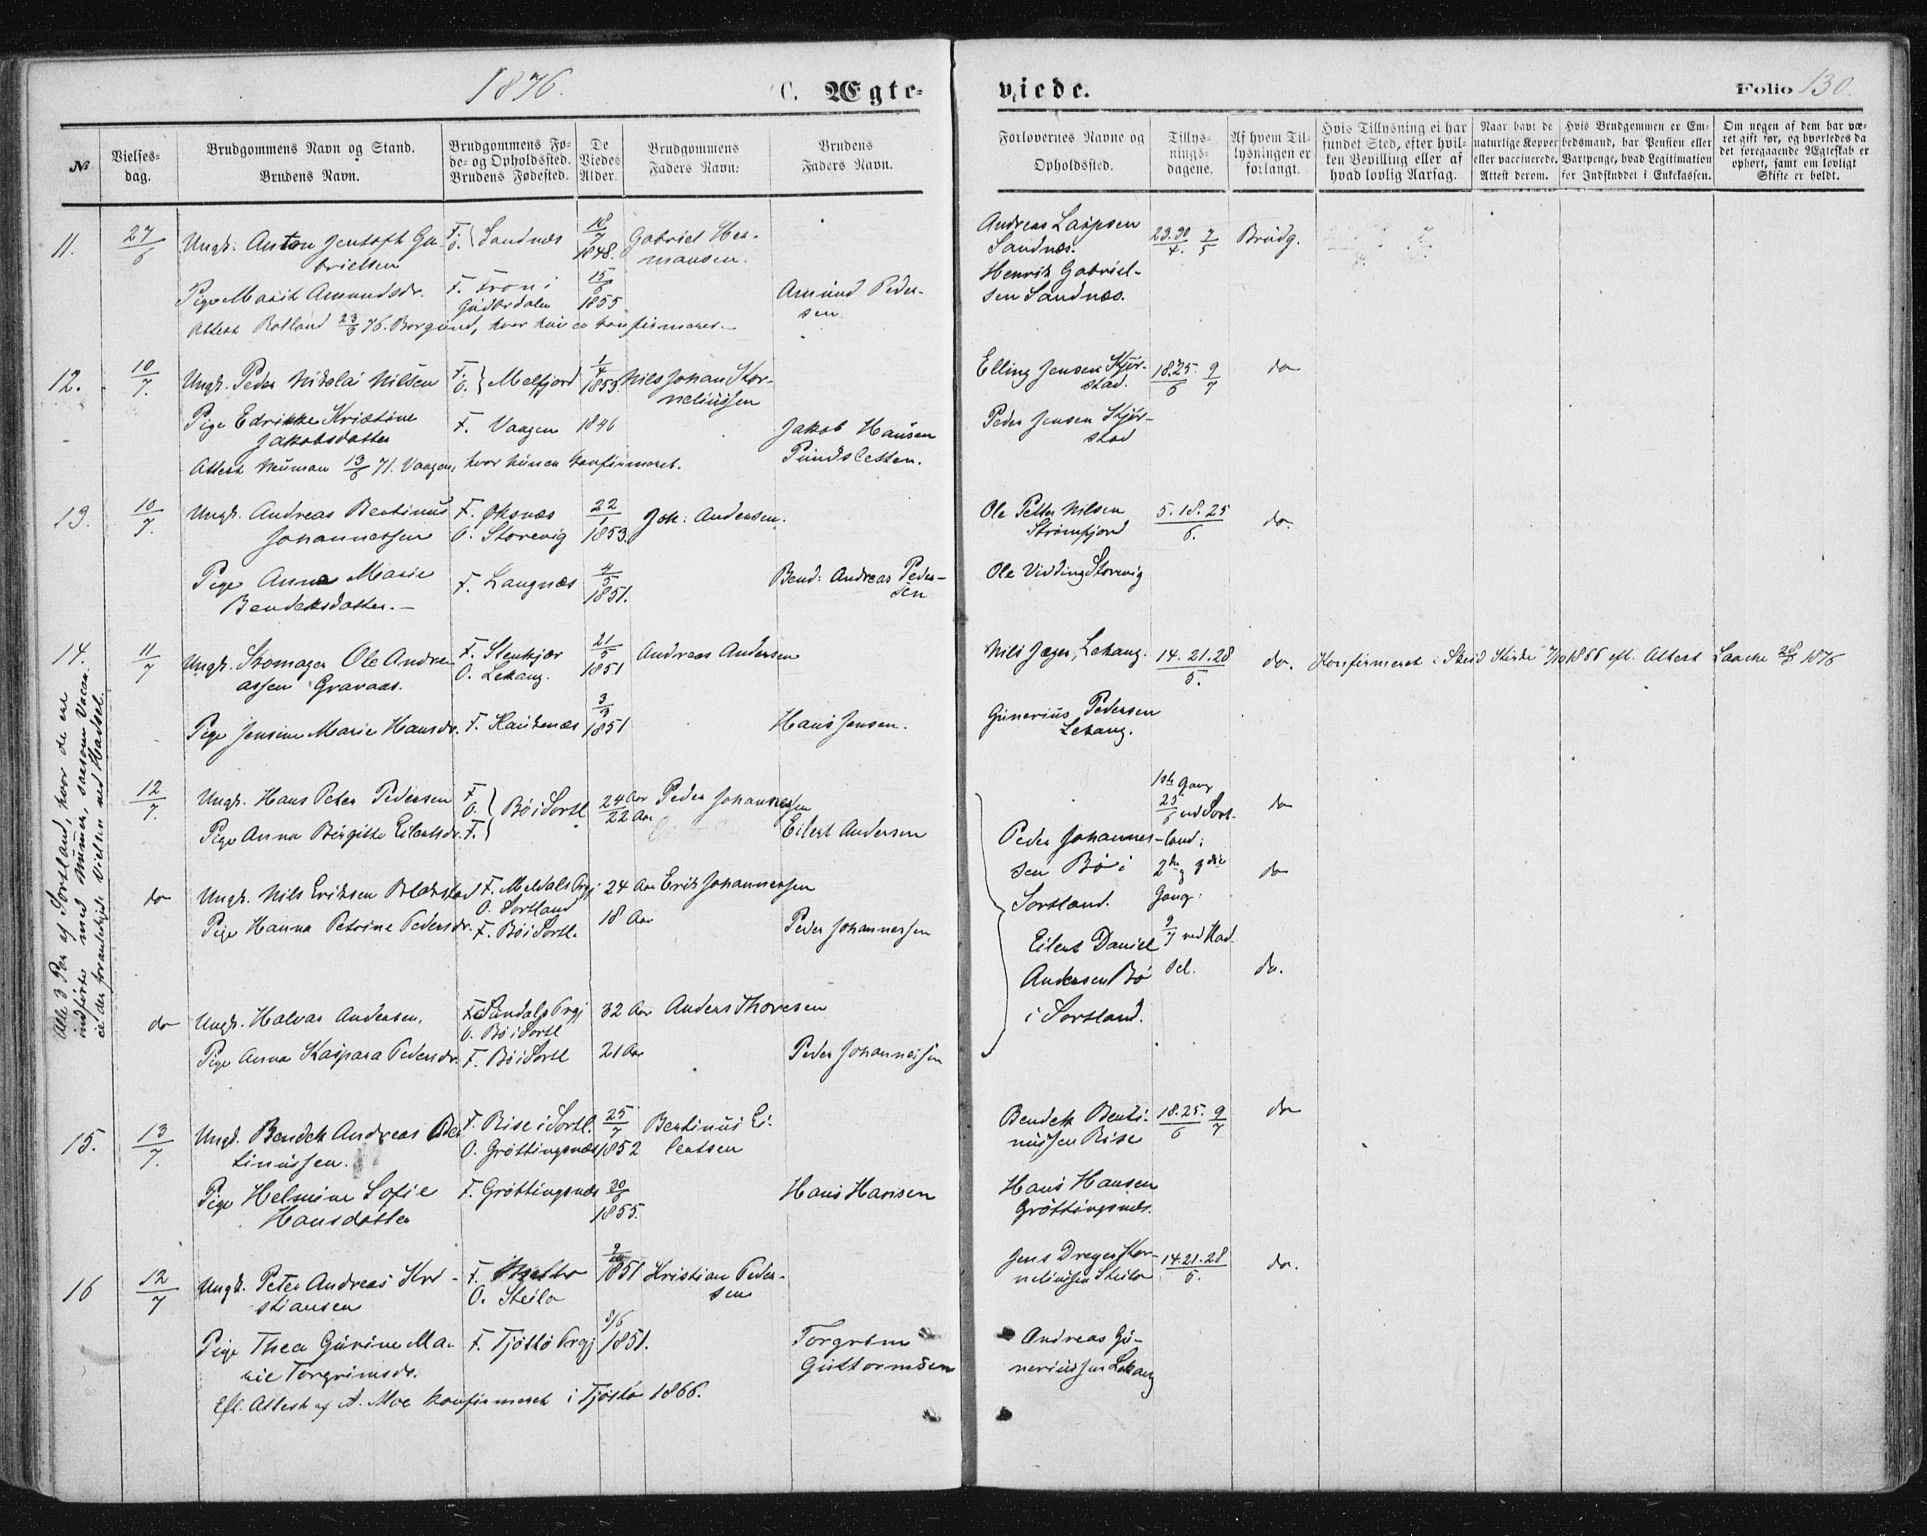 1876.
C. Ægteviede.
Folio 130.
№
Vielsesdag.
Brudgommens Navn og Stand.
Brudens Navn.
Brudgommens Føde- og Opholdssted.
Brudens Fødested.
De Viedes Alder.
Brudgommens Faders Navn:
Brudens Faders Navn.
Forlovernes Navne og Opholdssted.
Tillysningsdagene.
Af hvem Tillysningen er forlangt.
Hvis Tillysning ei har fundet Sted, efter hvilken Bevilling eller af hvad lovlig Aarsag.
Naar havt de naturlige Kopper eller vaccinerede. Attest derom.
Hvis Brudgommen er Embedsmand, har Pension eller Vartpenge, hvad Legitimation for Indskuddet i Enkekassen.
Om nogen af dem har været gift før, og hvorledes da det foregaaende Ægteskab er ophørt, samt om lovligt Skifte er holdt.
11. 27/6 Ungk. Anton Jentoft Gabrielsen F. O. } Sandnæs 18/7 1848. Gabriel Hermansen.
Andreas Sandnæs. 23.30/4. 7/5 Brudg.
Pige Marit Amundsdr. F. Fron i Gudbrdalen 15/5 1855 Amund Pedersen
Henrik Gabrielsen Sandnæs.
Attest Rolland 23/6 76. Borgund, hvor hun er konfirmeret.
12. 10/7. Ungk. Peder Nikolai Nilsen F. O. } Melfjord 1/4 1853 Nils Johan Kornelinssen
Elling Jensen Skjørstad. 18.25/6 9/7 do
Pige Edrikke Kristine Jakobsdatter F. Vaagen 1846 Jakob Hansen Pundsletten.
Peder Jensen Skjørstad
Attest Neuman 13/6 71. Vaagen, hvor hun er konfirmeret.
13. 10/7. Ungk. Andreas Bertinus Johannessen F. Øksnæs O. Storevig 22/1 1853. Joh: Andersen.
Ole Petter Nilsen Strømfjord 5.18.25/6. do.
Pige Anna Marie Bendeksdatter. F. Langnæs 4/5 1851. Bend: Andreas Pedersen
Ole Vidding Storevig
14. 11/7 Ungk. Skomager Ole Andreassen Gravaas. F. Stenkjær O. Lekang. 21/5 1851 Andreas Andersen
Nils Jæger, Lekang. 14.21.28/5. do. Konfirmeret i Kirke 1866 eft. Attest Laache 1876
Pige Jensine Marie Hansdr. F. Haukenæs 3/3 1851 Hans Jensen.
Gunerius Pedersen Lekang.
Alle 3 Par af Sortland, hvor de ere
indførte med Numer, saasom Vaccin.
ei der foranledigede Vielsen ved Hadsel.
12/7. Ungk. Hans Peter Pedersen F. O. } Bø i Sortl 24 Aar Peder Johannessen
Pige Anna Birgitte Eilertsdr. F. 22 Aar Eilert Andersen
Peder Johannessen Bø i Sortland.
1ste Gang 25/6 ved Sortland; 2den og 3die Gang 9/7 ved Hadsel. do
do Ungk. Nils Eriksen Blækstad F. Meldals Prgj O. Sortland 24 Aar Erik Johannessen do
Pige Hanna Petrine Pedersdr. F. Bø i Sortl. 18 Aar Peder Johannessen
Eilert Daniel Andersen Bø i Sortland. do.
do Ungk. Halvar Andersen, F. Sundals Prgj O. Bø i Sortl 32 Aar Anders Thoresen
Pige Anna Kaspara Pedersdr. F. Bø i Sortl 21 Aar Peder Johannessen
15. 13/7. Ungk. Bendek Andreas Bertinussen. F. Rise i Sortl. O. Grøttingsnæs 25/7 1852 Bertinus Eilertsen
Bendek Bertinussen Rise 18.25./6 9/7 do
Pige Helmine Sofie Hansdatter F. Grøttingsnæs 20/6 1855. Hans Hansen
Hans Hansen Grøttingsnæs.
16 12/7 Ungk. Peter Andreas Kristiansen F. O. Steilo 1851 Kristian Pedersen
Jens Dreyer Kornelinssen Steilo 14.21.28/5. do.
Pige Thea Gurine Marie Torgrimsdr. F. Tjøttø Prgj 8/6 1851. Torgrim Guttormsen
Andreas Gunerinssen Lekang
Eft. Attest af A. Moe konfirmeret i Tjøttø 1866.